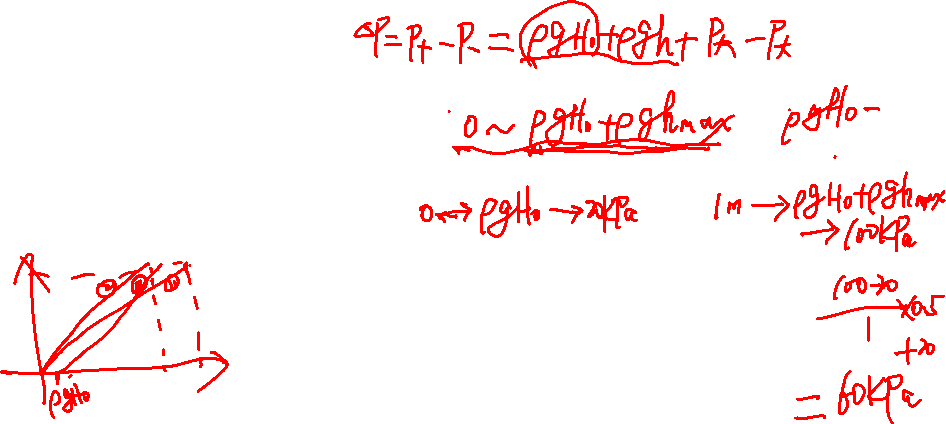 ΔP=P+-P-=ρgH₀+ρgh+P大-P大
0~ρgH₀+ρghmax ρgH₀-
0→ρgH₀→20kPa 1m→ρgH₀+ρghmax
→100kPa
100-20
1
×0.5
+20
=60kPa
③ ② ①
ρgH₀